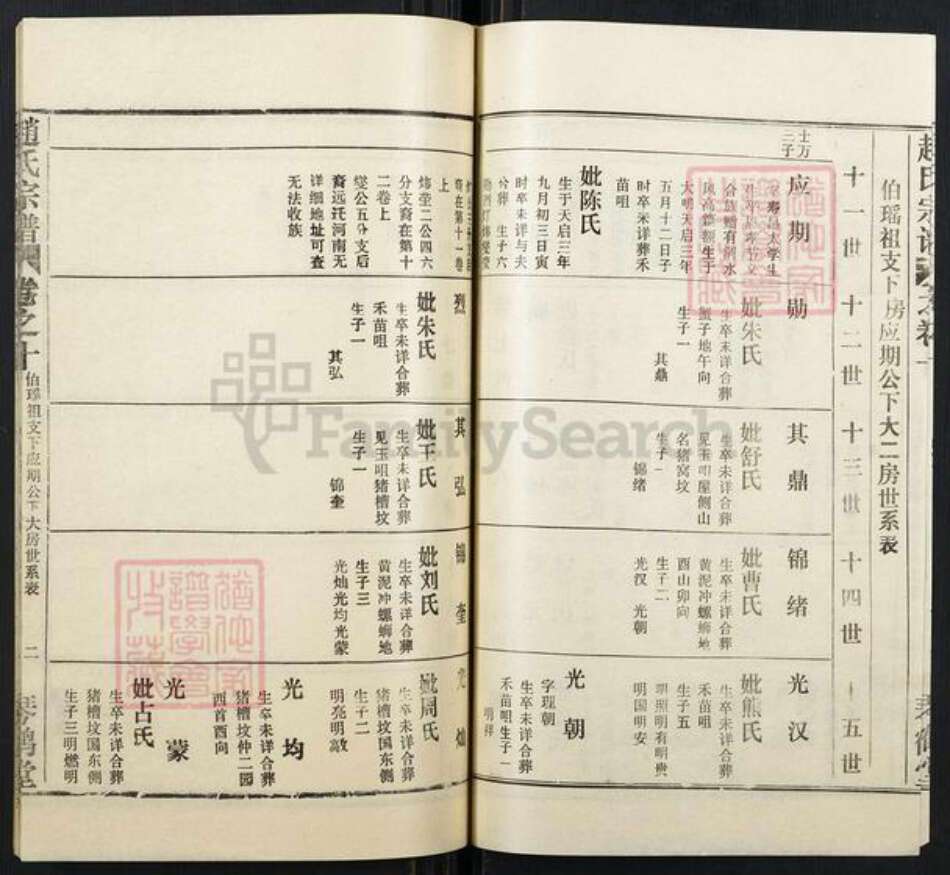 伯瑶祖支下房应期公下大二房世系表
十一世
十二世
十三世
十四世
十五世
士万
三子
应期
五月十二日子
时卒未详葬禾
苗咀
妣陈氏
生于天启三年
九月初三日寅
时卒未详与夫
合葬 生子六
炜莹二公四六
分支裔在第十
二卷上
燮公五分支后
裔远迁河南无
详细地址可查
无法收族
勋
妣朱氏
生卒未详合葬
蟹子地午向
生子一
其鼎
烈
妣朱氏
生卒未详合葬
禾苗咀
生子一
其弘
其鼎
妣舒氏
生卒未详合葬
见玉咀屋侧山
名猪窝坟
生子一
锦绪
其弘
妣王氏
生卒未详合葬
见玉咀猪槽坟
生子一
锦奎
锦绪
妣曹氏
生卒未详合葬
黄泥冲螺蛳地
酉山卯向
生子二
光汉 光朝
锦奎
妣刘氏
生卒未详合葬
黄泥冲螺蛳地
生子三
光灿光均光蒙
光汉
妣熊氏
生卒未详合葬
禾苗咀
生子五
明照明有明贵
明国明安
光朝
字理朝
生卒未详合葬
禾苗咀生子一
明祥
光灿
妣周氏
生卒未详合葬
猪槽坟国东侧
生子二
明亮明高
光均
生卒未详合葬
猪槽坟仲二园
西首酉向
光蒙
妣占氏
生卒未详合葬
猪槽坟国东侧
生子三明燃明
赵氏宗谱
卷之十
伯瑶祖支下应期公下大房世系表
二
琴鹤堂
FamilySearch